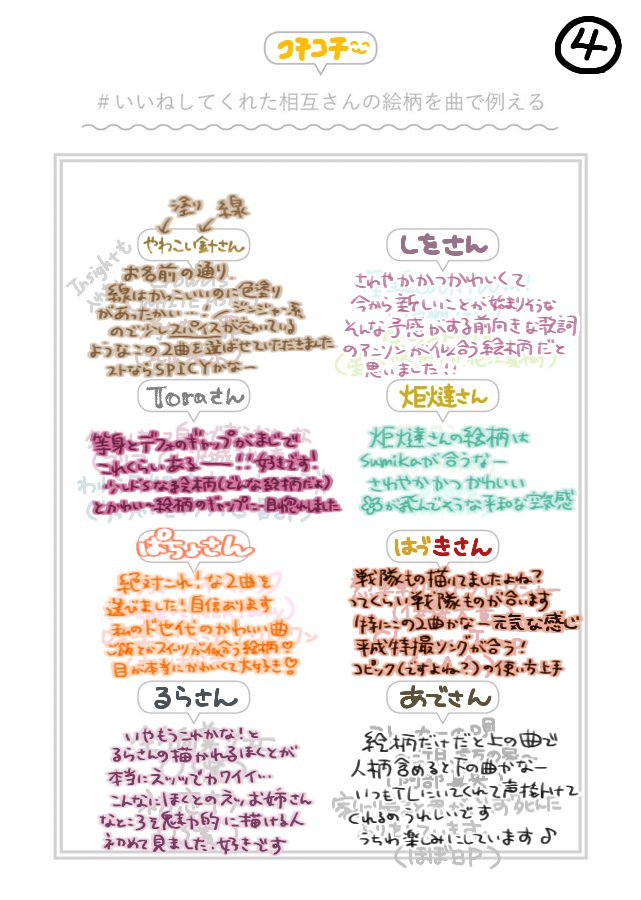 コチコチ
④
#いいねしてくれた相互さんの絵柄を曲で例える
塗り 線
やわこい針さん
Insightも
お名前の通り、
線はかっこいいのに色塗り
があったかい…!
ので少しスパイスが欠かている
ようなこの2曲を選ばせていただきました
ストならSPICYかなー
しをさん
さわやかかつかわいくて
今から新しいことが始まりそうな
そんな予感がする前向きな歌詞
のアニソンが似合う絵柄だと
思いました!!
Toraさん
等身とデフォのギャップがまじで
これくらいあるーー!!好きです!
(どんな絵柄だよ)
とかわいい絵柄のギャップに一目惚れしました
炬燵さん
炬燵さんの絵柄は
sumikaが合うなー
さわやかかつかわいい
が飛んでそうな平和な空気感
ぱちょさん
絶対これ!な2曲を
選びました!自信あります
私のドセイヘキのかわいい曲
ご飯とかスイーツが似合う絵柄!
目が本当にかわいくて大好き!
はづきさん
戦隊もの描いてましたよね?
ってくらい戦隊ものが合います
特にこの2曲かなー元気な感じ
平成特撮ソングが合う!
コピック(ですよね?)の使い方上手
るらさん
いやもうこれかな!と
るらさんの描かれるほくとが
本当にエッッでカワイイ…
こんなにほくとのエッお姉さん
なところを魅力的に描ける人
初めて見ました.好きです
あでさん
絵柄だけだと上の曲で
人柄含めると下の曲かなー
いつもTLにいてくれて声掛けて
くれるのうれしいです
うちわ楽しみにしています♪
(ほぼBP)